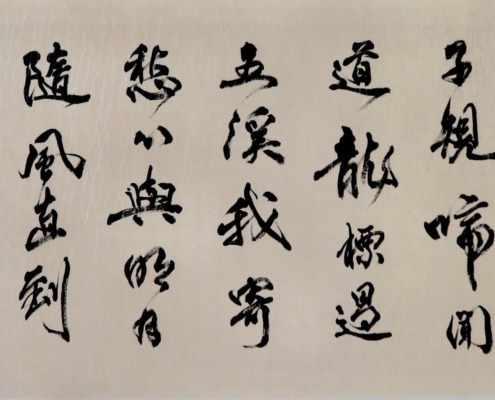 子規啼聞
道龍標過
五溪我寄
愁心與明月
隨風直到